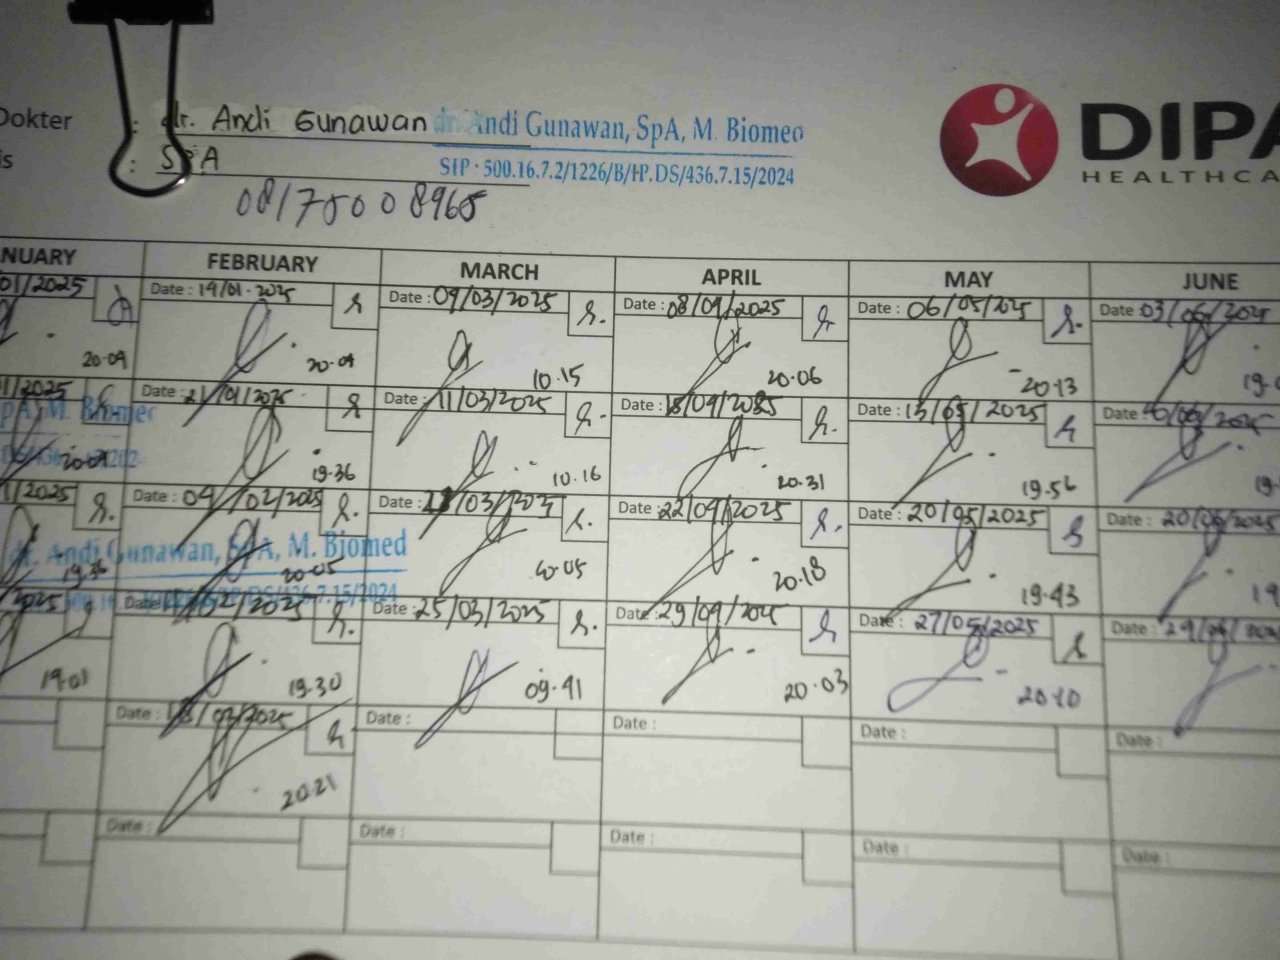 Dokter : dr. Andi Gunawan dr. Andi Gunawan, SpA, M. Biomed
: SPA SIP · 500.16.7.2/1226/B/HP.DS/436.7.15/2024
081750008965
DIPA
HEALTHCA
NUARY FEBRUARY MARCH APRIL MAY JUNE
01/2025 Date : 19/01-2025 Date : 09/03/2025 Date : 08/09/2025 Date : 06/05/2025 Date : 03/06/2025
20.09 20.09 10.15 20.06 20.13 19.
/2025 Date : 21/01/2025 Date : 11/03/2025 Date : 18/09/2025 Date : 13/05/2025 Date :
pA, M. Biomed
19.36 10.16 20.31 19.56 19.
1/2025 Date : 04/02/2025 Date : /03/2025 Date : 22/09/2025 Date : 20/05/2025 Date : 20/06/2025
dr. Andi Gunawan, SpA, M. Biomed
19.36 20.05 20.05 20.18 19.43 19
.7.15/2024
2025 Date : /02/2025 Date : 25/03/2025 Date : 29/09/2025 Date : 27/05/2025 Date : 24/06/
19.01 19.30 09.41 20.03 20.10
Date : 18/02/2025 Date : Date : Date : Date :
20.21
Date : Date : Date : Date : Date :